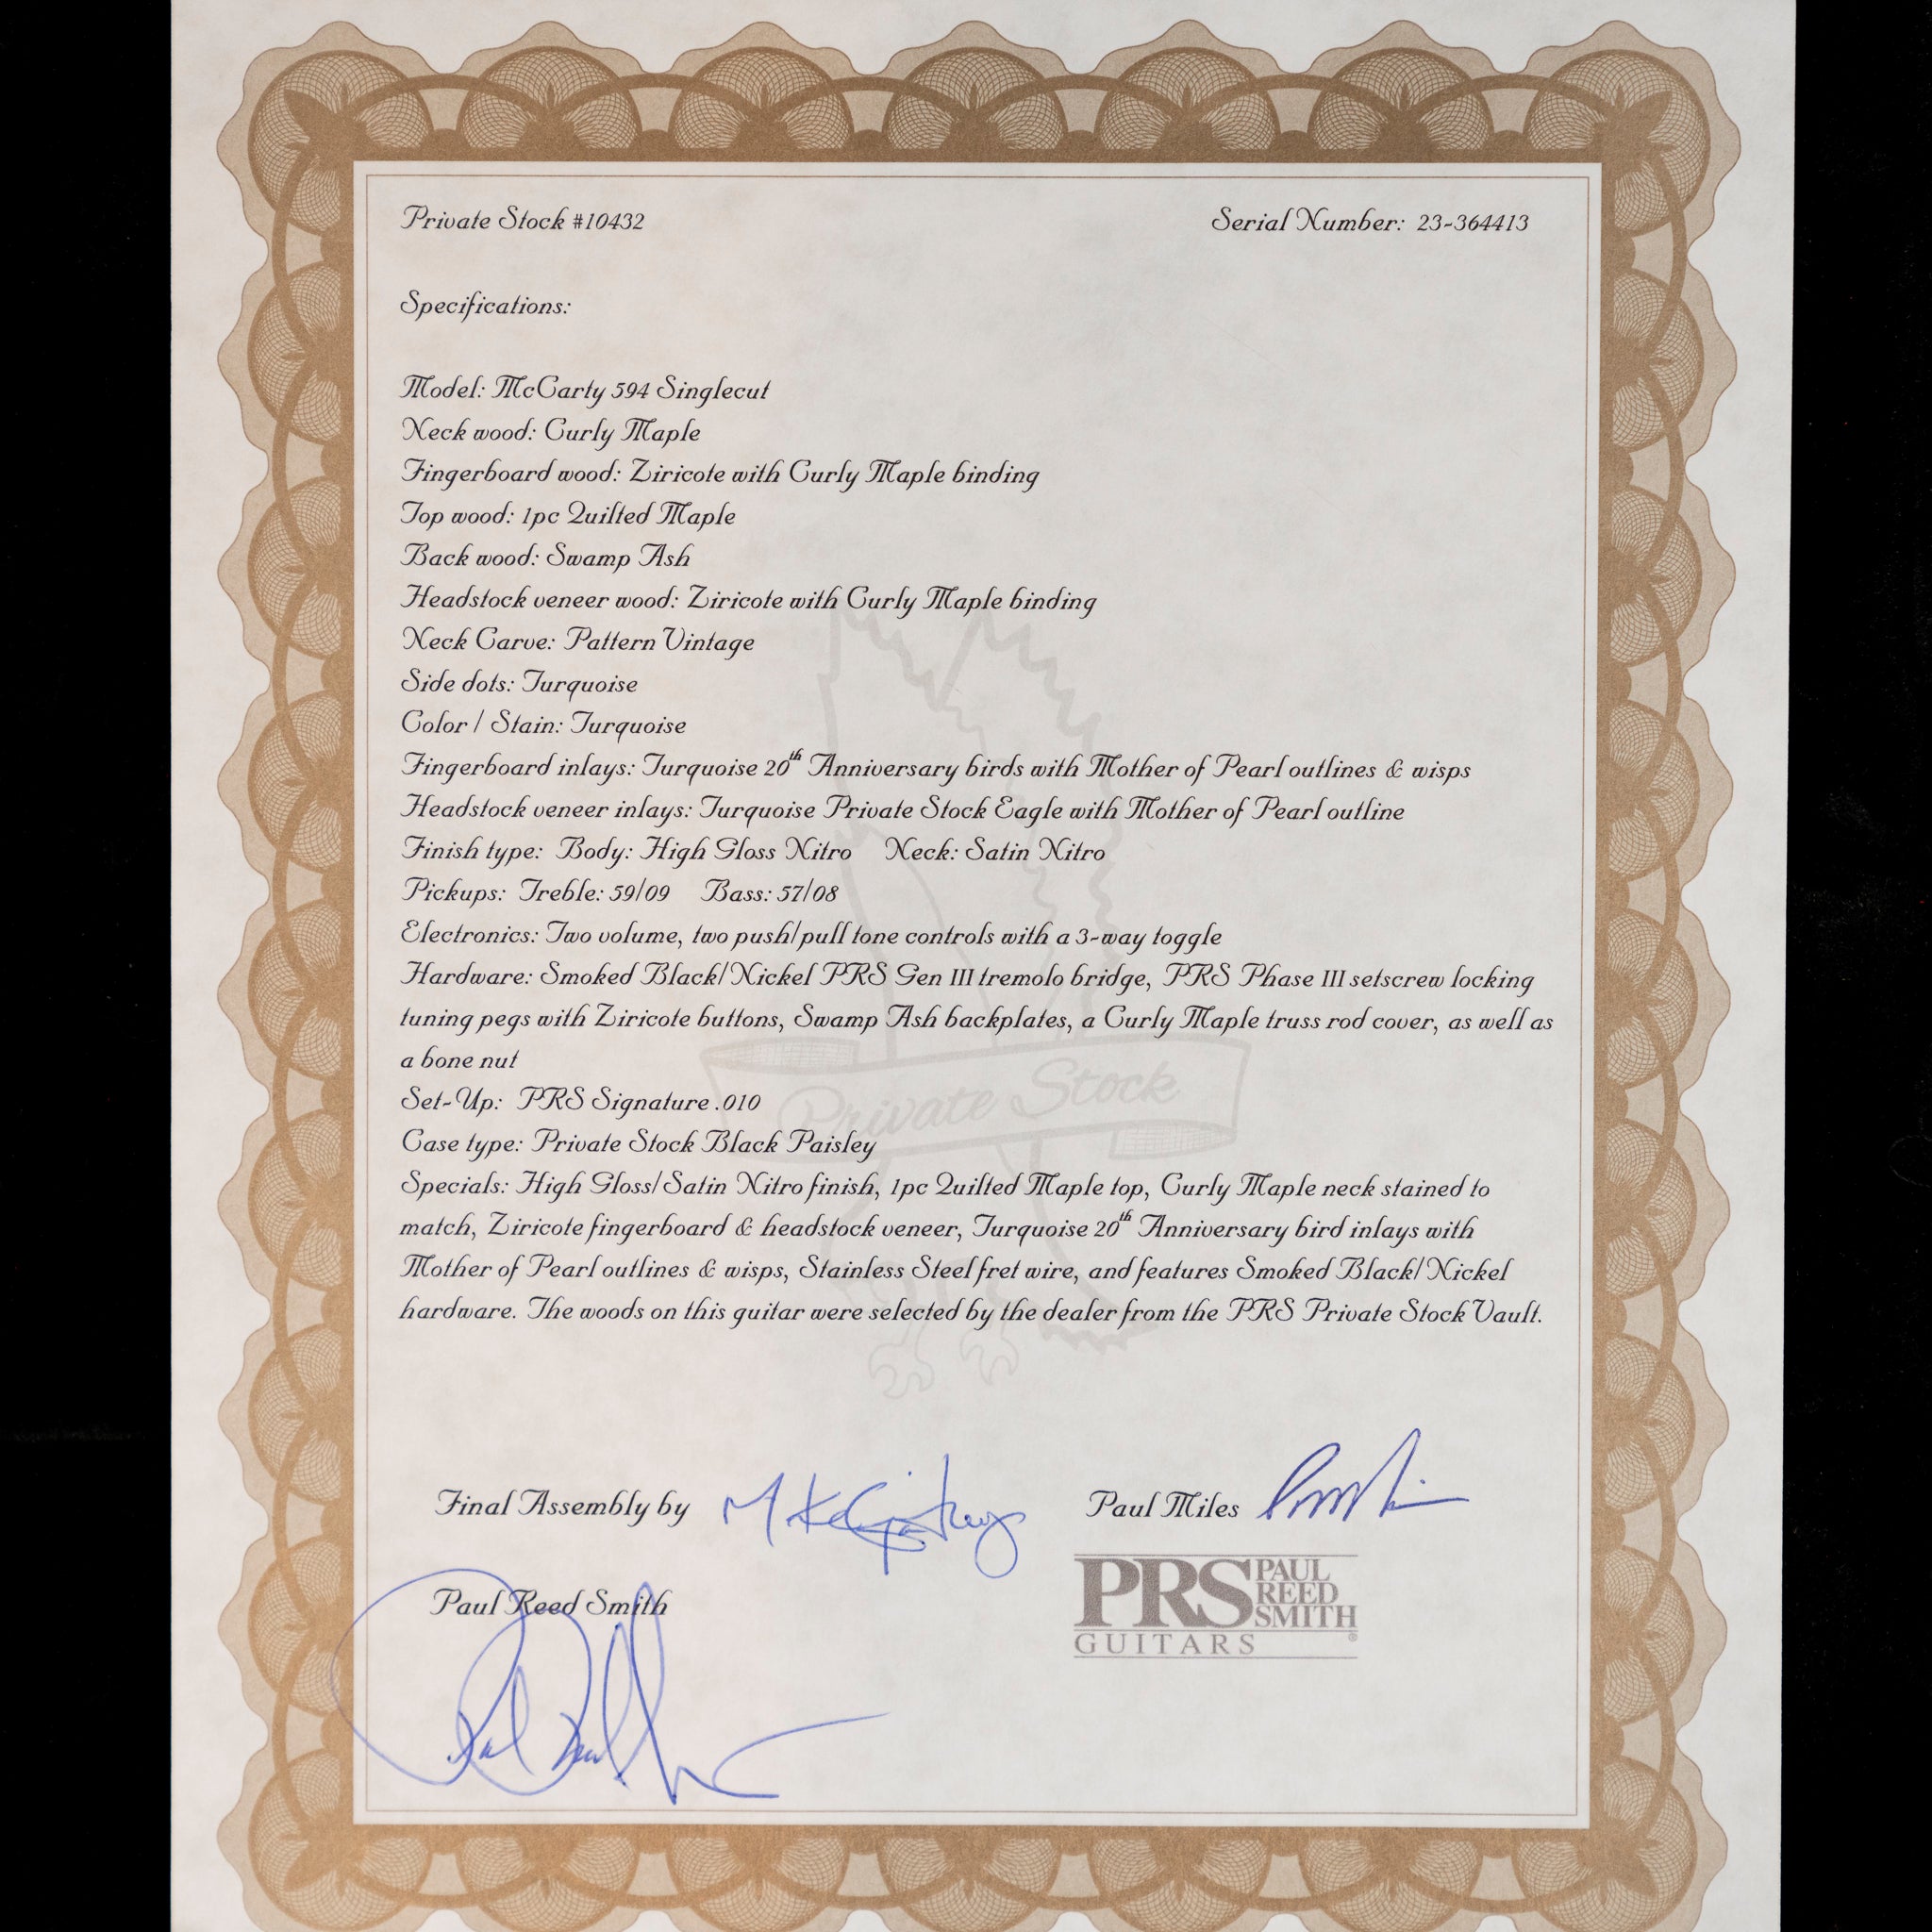 Private Stock #10432
Serial Number: 23-364413
Specifications:
Model: McCarty 594 Singlecut
Neck wood: Curly Maple
Fingerboard wood: Ziricote with Curly Maple binding
Top wood: 1pc Quilted Maple
Back wood: Swamp Ash
Headstock veneer wood: Ziricote with Curly Maple binding
Neck Carve: Pattern Vintage
Side dots: Turquoise
Color / Stain: Turquoise
Fingerboard inlays: Turquoise 20th Anniversary birds with Mother of Pearl outlines & wisps
Headstock veneer inlays: Turquoise Private Stock Eagle with Mother of Pearl outline
Finish type: Body: High Gloss Nitro Neck: Satin Nitro
Pickups: Treble: 59/09 Bass: 57/08
Electronics: Two volume, two push/pull tone controls with a 3-way toggle
Hardware: Smoked Black/Nickel PRS Gen III tremolo bridge, PRS Phase III setscrew locking
tuning pegs with Ziricote buttons, Swamp Ash backplates, a Curly Maple truss rod cover, as well as
a bone nut
Set-Up: PRS Signature .010
Case type: Private Stock Black Paisley
Specials: High Gloss/Satin Nitro finish, 1pc Quilted Maple top, Curly Maple neck stained to
match, Ziricote fingerboard & headstock veneer, Turquoise 20th Anniversary bird inlays with
Mother of Pearl outlines & wisps, Stainless Steel fret wire, and features Smoked Black/Nickel
hardware. The woods on this guitar were selected by the dealer from the PRS Private Stock Vault.
Private Stock
Final Assembly by
Paul Miles
Paul Reed Smith
PRS PAUL
REED
SMITH
GUITARS ®